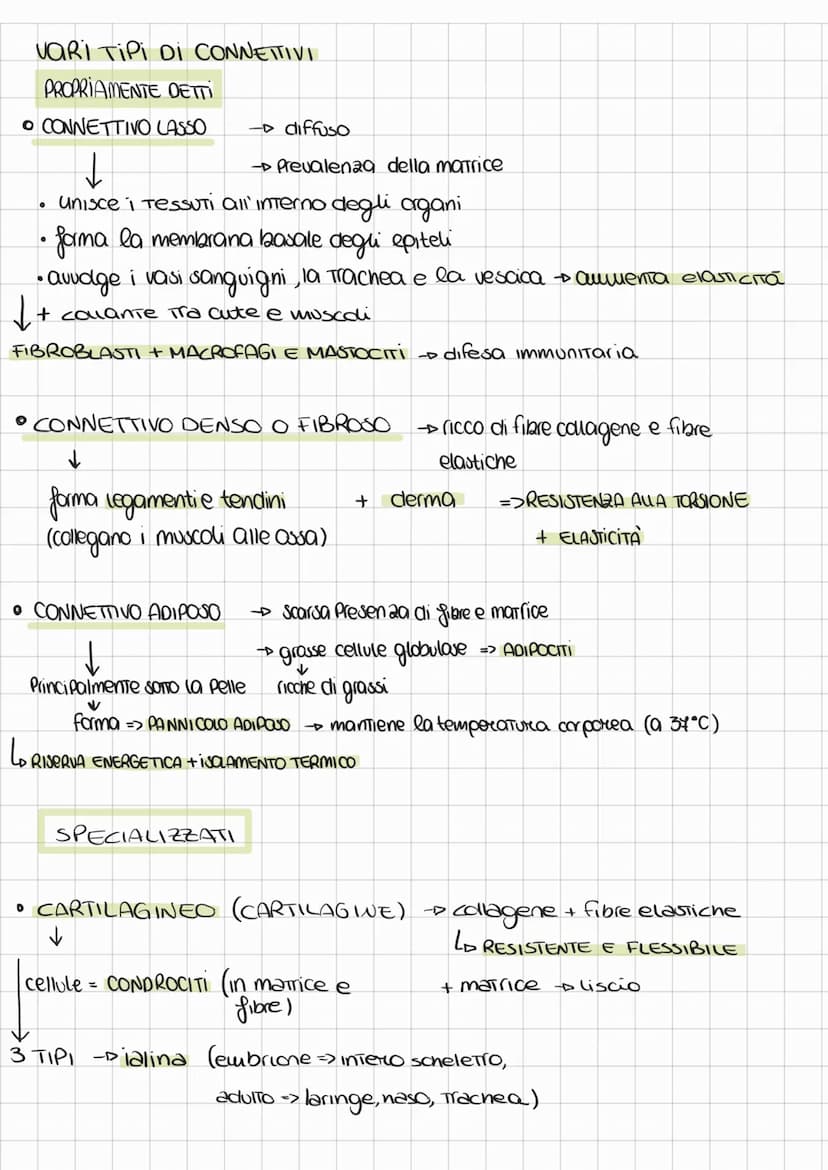 VARI TIPI DI CONNETTIVI
PROPRIAMENTE DETTI
• CONNETTIVO LASSO → diffuso
↓ → prevalenza della matrice
• unisce i tessuti all'interno degli organi
• forma la membrana basale degli epiteli
• avvolge i vasi sanguigni, la trachea e la vescica → aumenta elasticità
↓ + collante tra cute e muscoli
FIBROBLASTI + MACROFAGI E MASTOCITI → difesa immunitaria
• CONNETTIVO DENSO O FIBROSO → ricco di fibre collagene e fibre
↓ elastiche
forma legamenti e tendini + derma => RESISTENZA ALLA TORSIONE
(collegano i muscoli alle ossa) + ELASTICITÀ
• CONNETTIVO ADIPOSO → scarsa presenza di fibre e matrice
↓ → grosse cellule globulose => ADIPOCITI
↓
Principalmente sotto la pelle ricche di grassi
↓
forma => PANNICOLO ADIPOSO → mantiene la temperatura corporea (a 37°C)
↳ RISERVA ENERGETICA + ISOLAMENTO TERMICO
SPECIALIZZATI
• CARTILAGINEO (CARTILAGINE) → collagene + fibre elastiche
↓ ↳ RESISTENTE E FLESSIBILE
cellule = CONDROCITI (in matrice e + matrice → liscio
fibre)
↓
3 TIPI → ialina (embrione => intero scheletro,
adulto => laringe, naso, trachea)